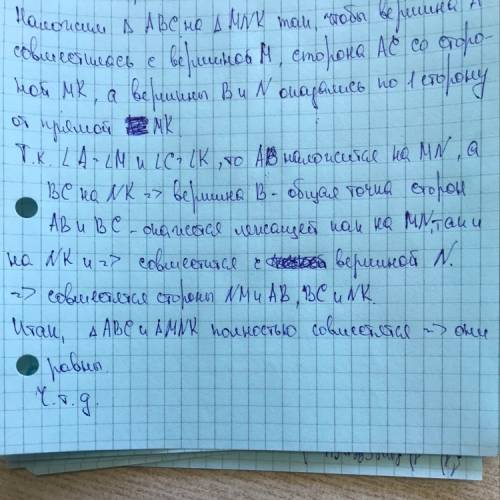 Наложим △ ABC на △ MNK так, чтобы вершина A
совместилась с вершиной M, сторона AC со сторо-
ной MK, а вершины B и N оказались по 1 сторону
от прямой MK.
Т.к. ∠A = ∠M и ∠C = ∠K, то AB наложится на MN, а
BC на NK => вершина B - общая точка сторон
AB и BC - окажется лежащей как на MN, так и
на NK и => совместится с вершиной N.
=> совместятся стороны NM и AB, BC и NK.
Итак, △ ABC и △ MNK полностью совместятся => они
равны.
Ч.т.д.